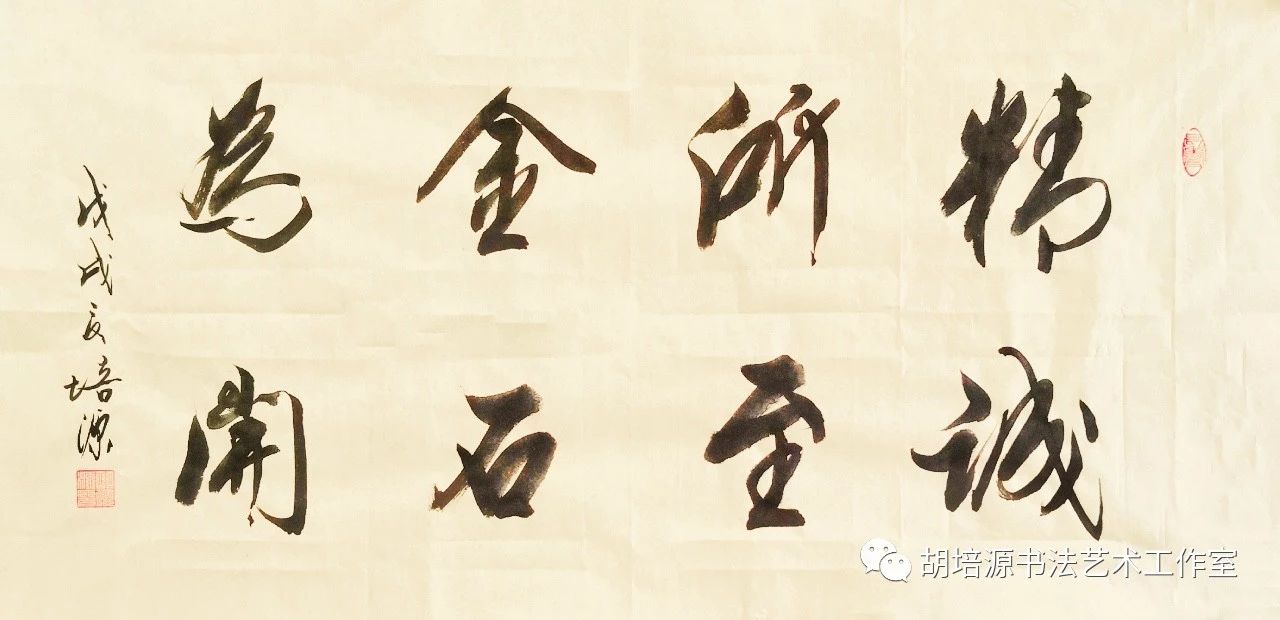 精誠
所至
金石
為開
戊戌夏培源
胡培源书法艺术工作室